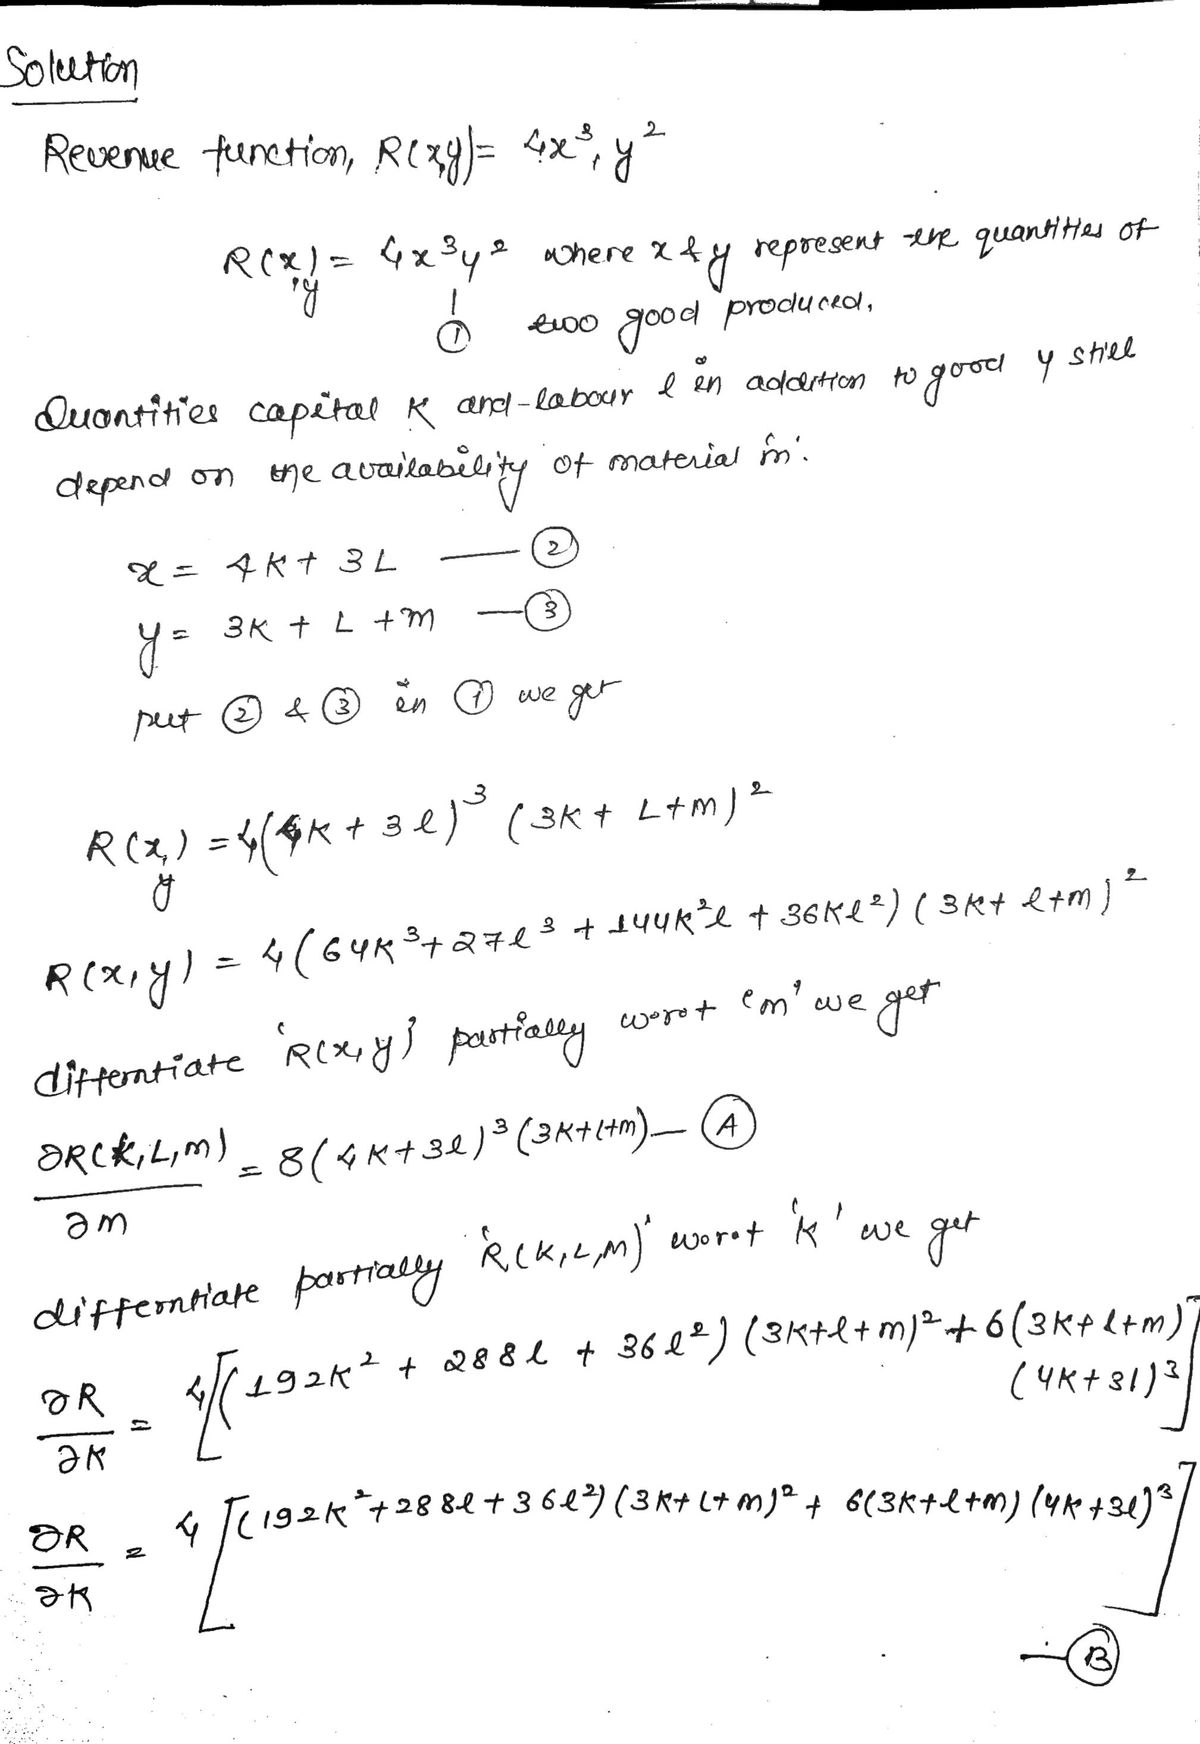 Solution
Revenue function, R(x,y) = 4x³, y²
R(x,y) = 4x³y² where x & y represent the quantities of
① two good produced.
Quantities capital K and labour l in addition to good y still
depend on the availability of material 'm'.
x = 4K + 3L —— ②
y = 3K + L + m —— ③
put ② & ③ in ① we get
R(x,y) = 4(4K + 3l)³ (3K + L+m)²
R(x,y) = 4(64K³+27l³ + 144K²l + 36Kl²) (3K+ l+m)²
differntiate 'R(x,y)' partially w.r.t 'm' we get
∂R(k,L,m)/∂m = 8(4K+3l)³(3K+l+m) — Ⓐ
differntiate partially 'R(K,L,m)' w.r.t 'K' we get
∂R/∂K = 4[(192K² + 288l + 36l²) (3K+l+m)² + 6(3K+l+m)
(4K+3l)³]
∂R/∂K = 4[(192K²+288l+36l²)(3K+l+m)² + 6(3K+l+m)(4K+3l)³]
— Ⓑ